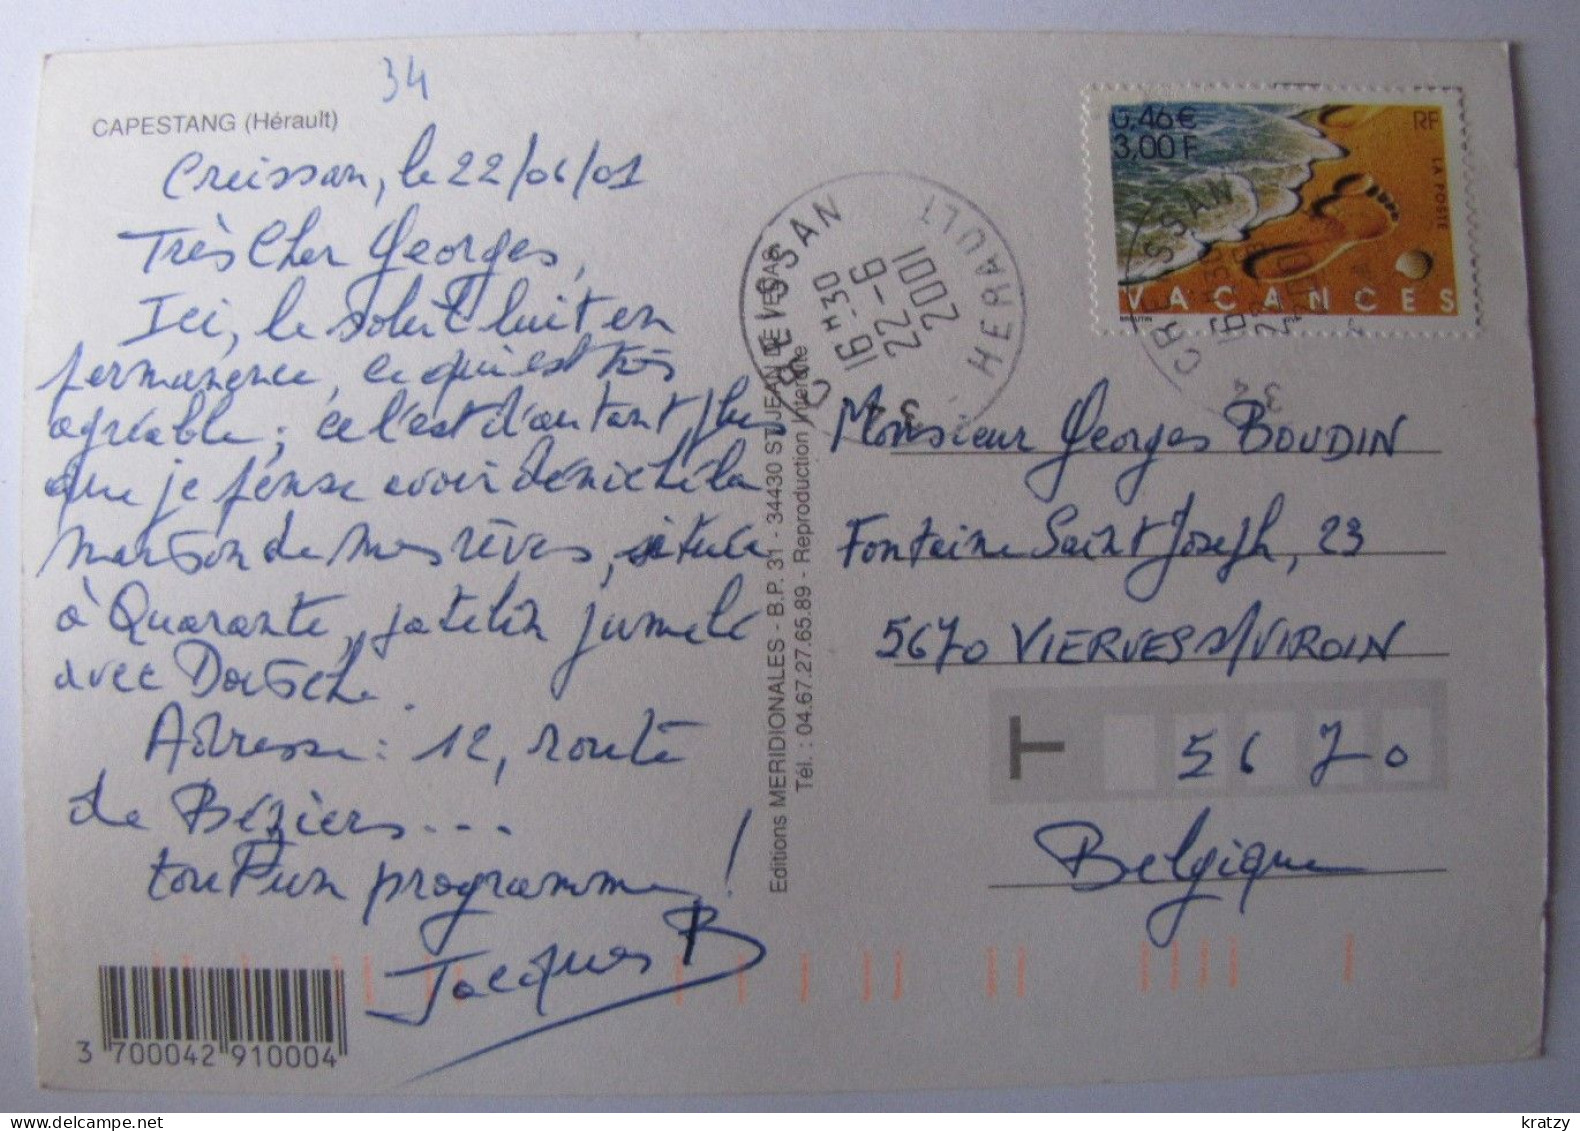 34
CAPESTANG (Hérault)
Creissan, le 22/06/01
Très Cher Georges,
Ici, le soleil luit en
permanence, ce qui est très
agréable ; ce l'est d'autant plus
que je pense avoir déniché la
maison de mes rêves, située
à Quarante, patelin jumelé
avec Doische.
Adresse : 12, route
de Béziers...
tout un programme !
Jacques B
3 700042 910004
Editions MERIDIONALES - B.P. 31 - 34430 ST JEAN DE VEDAS
Tél. : 04.67.27.65.89 - Reproduction Interdite
CREISSAN
16H30
22-6
2001
34 HERAULT
0,46 €
3,00 F
RF
LA POSTE
VACANCES
CREISSAN
16H30
22-6
2001
34
Monsieur Georges BOUDIN
Fontaine Saint Joseph, 23
5670 VIERVES S/VIROIN
T 5670
Belgique
kratzy